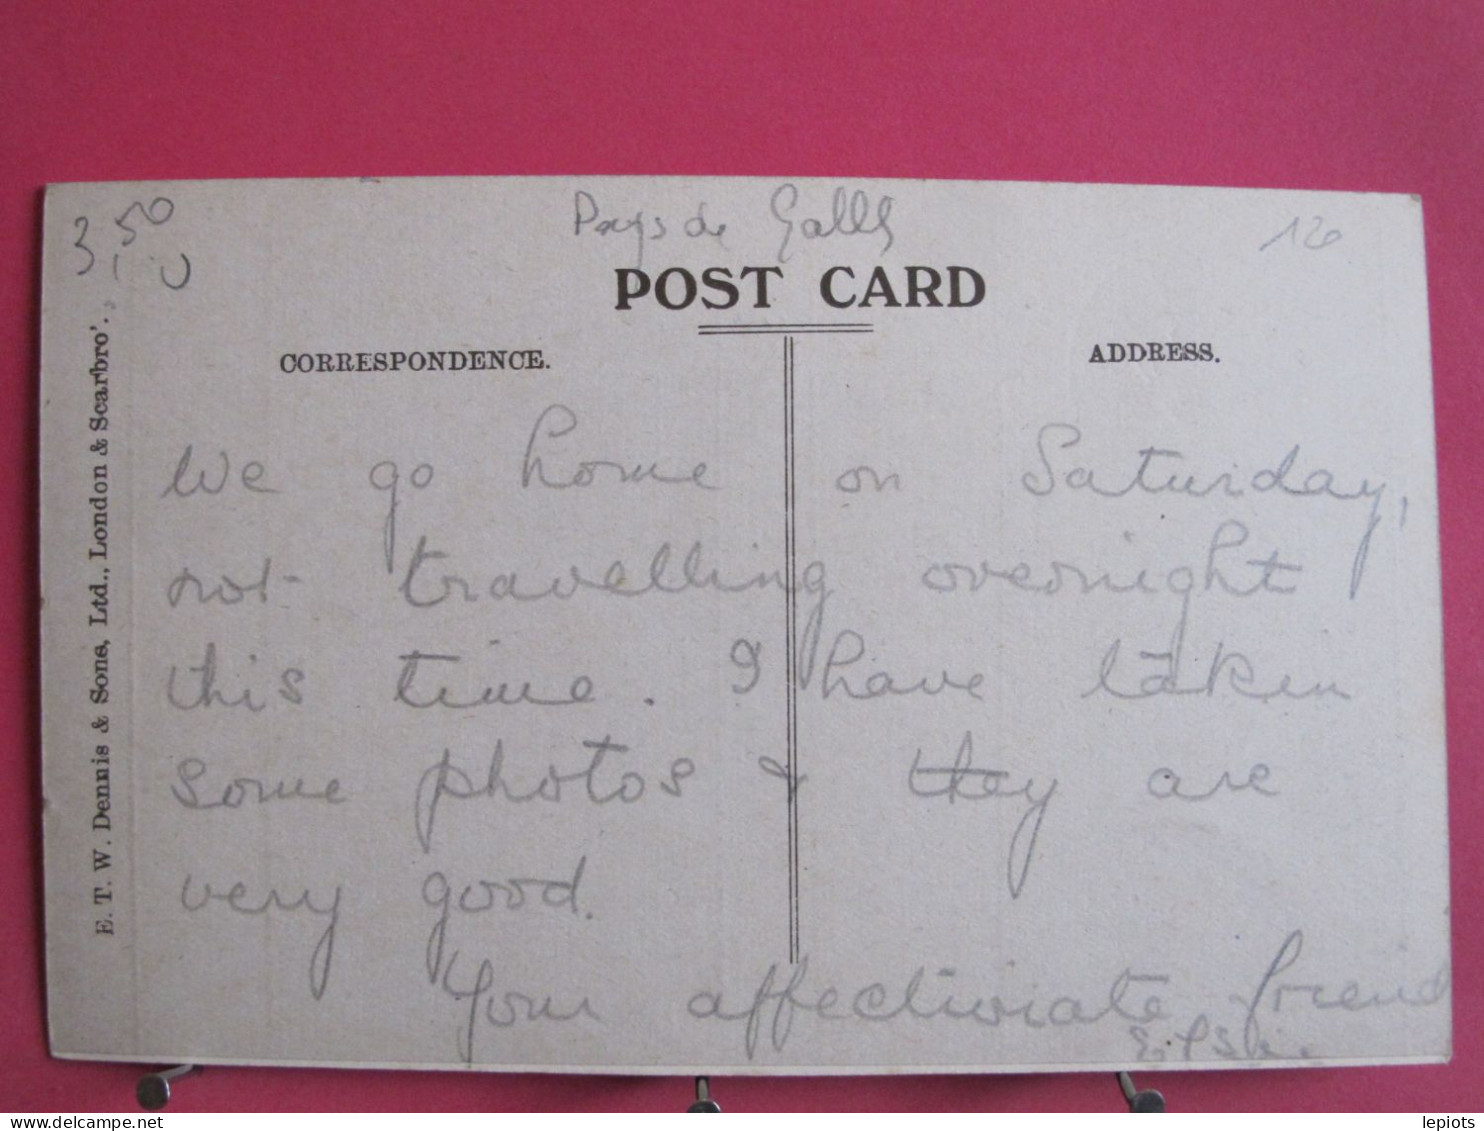 3,50
Pays de Galles
120
POST CARD
CORRESPONDENCE.
ADDRESS.
E. T. W. Dennis & Sons, Ltd., London & Scarbro'.
We go home on Saturday,
not travelling overnight
this time. I have taken
some photos & they are
very good.
Your affectionate friend
Elsie.
lepiots